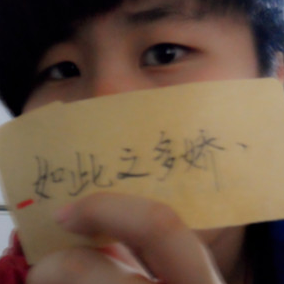 如此之多娇、